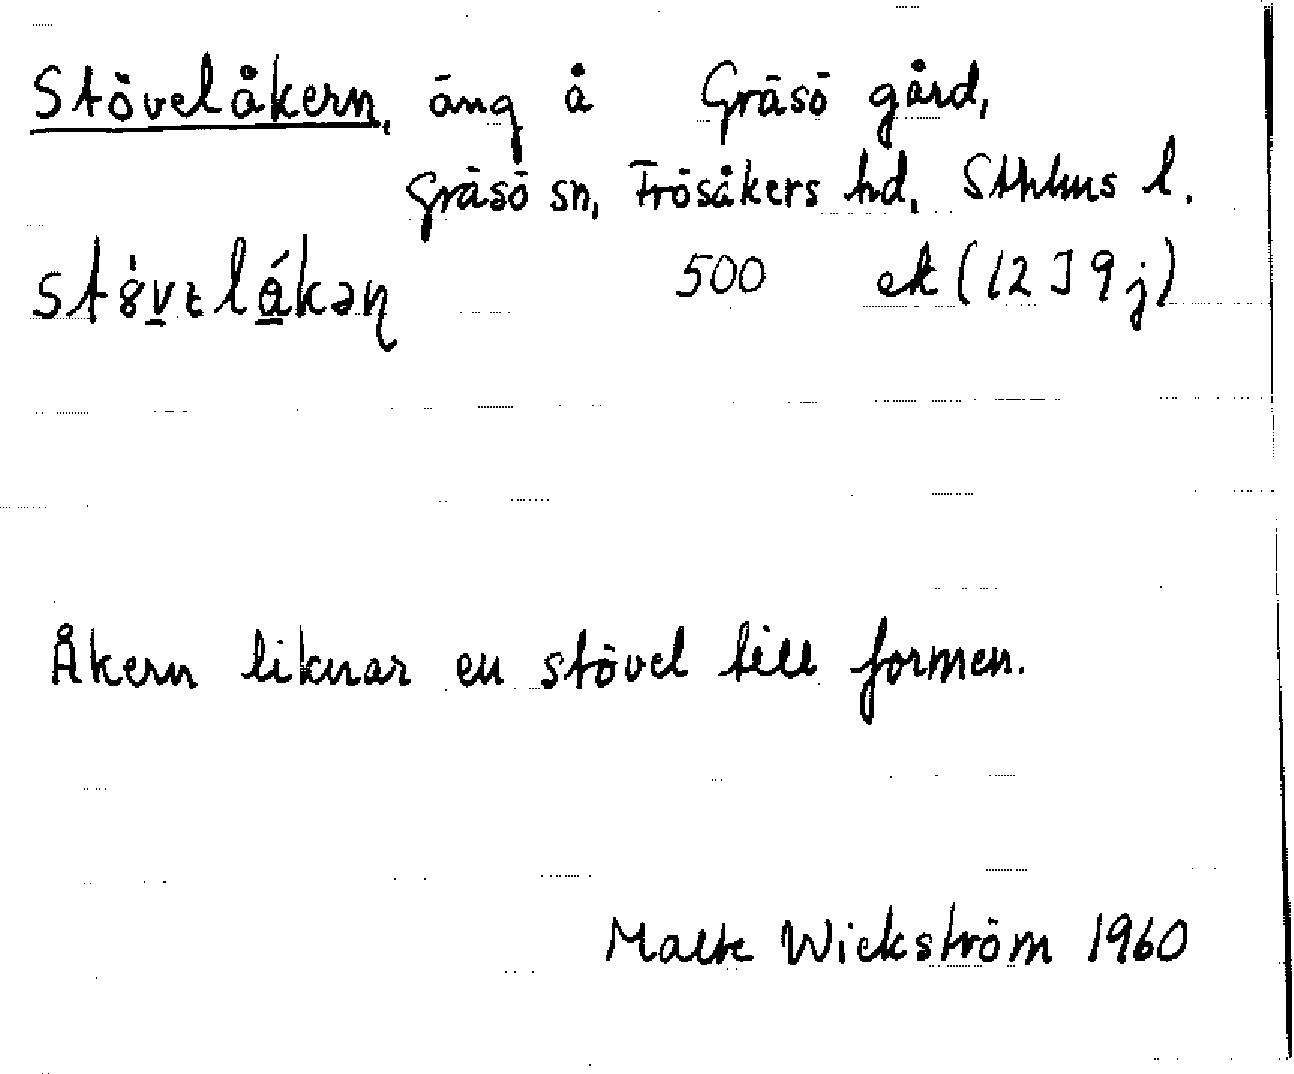 Stövelåkern, äng å Gräsö gård,
Gräsö sn, Frösåkers hd, Sthlms l.
500 ek (12 I 9 j)
Åkern liknar en stövel till formen.
Malte Wickström 1960